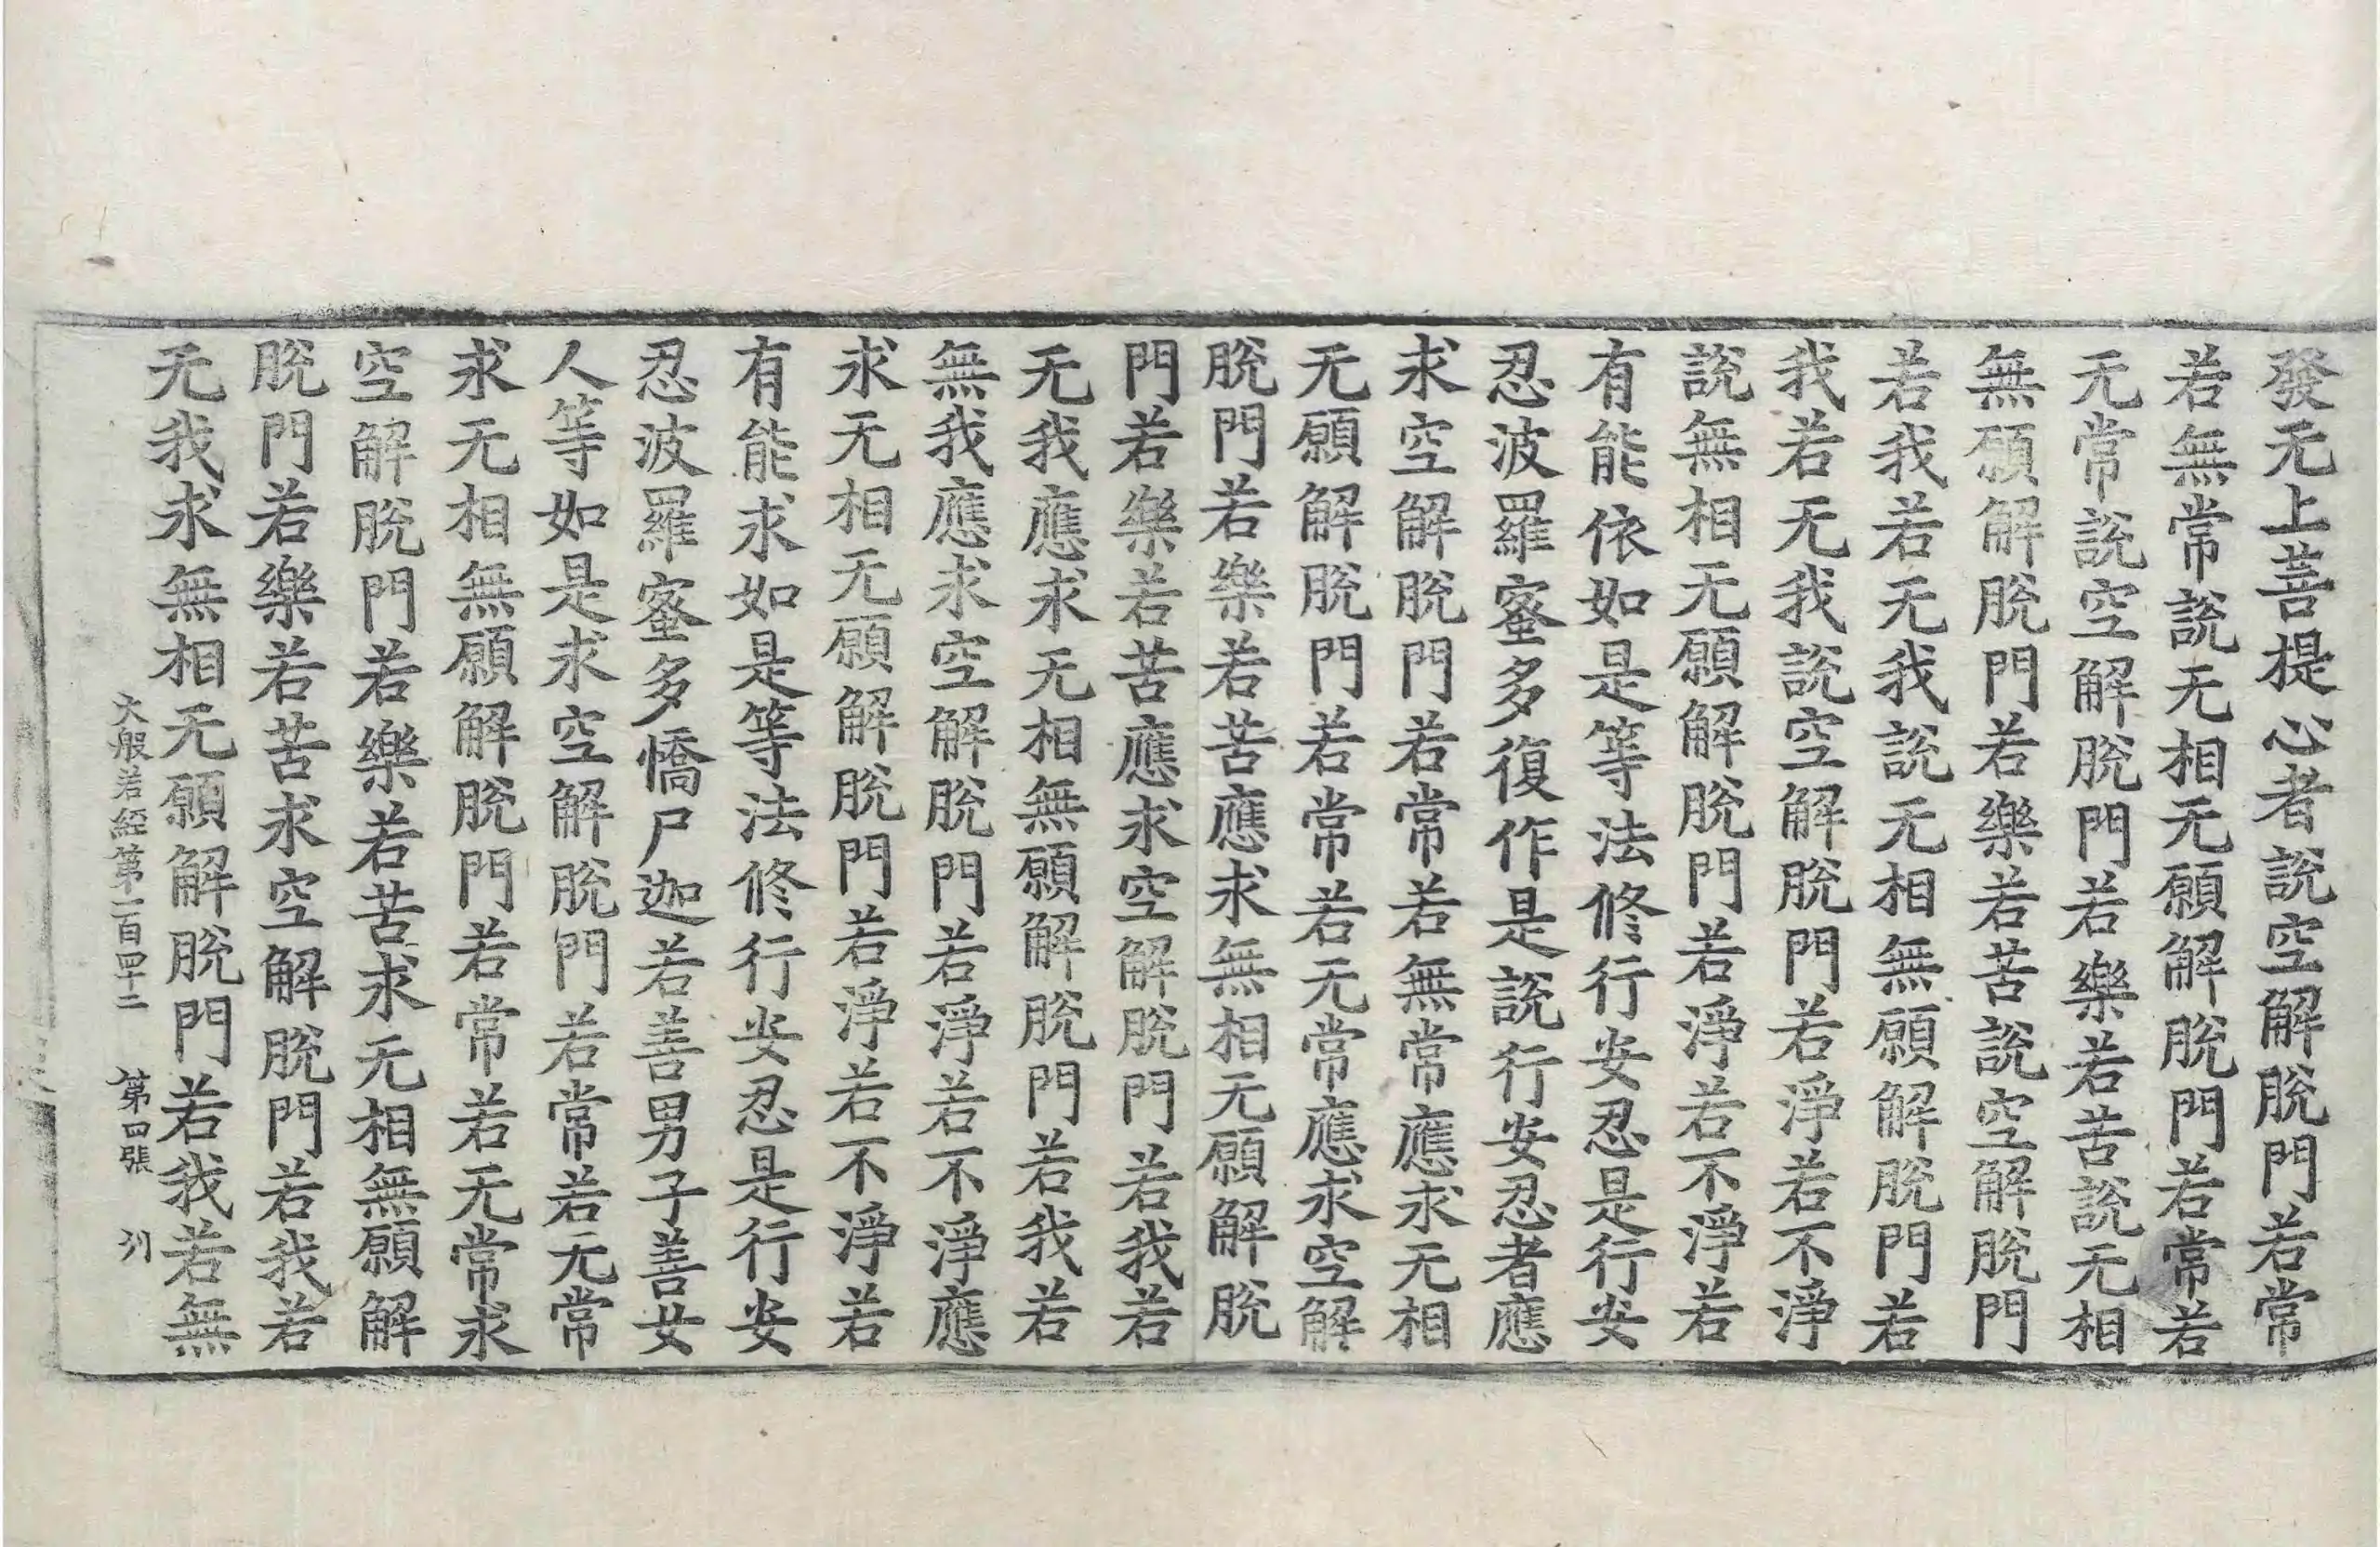 發无上菩提心者說空解脫門若常
若無常說无相无願解脫門若常若
无常說空解脫門若樂若苦說无相
無願解脫門若樂若苦說空解脫門
若我若无我說无相無願解脫門若
我若无我說空解脫門若淨若不淨
說無相无願解脫門若淨若不淨若
有能依如是等法修行安忍是行安
忍波羅蜜多復作是說行安忍者應
求空解脫門若常若無常應求无相
无願解脫門若常若无常應求空解
脫門若樂若苦應求無相无願解脫
門若樂若苦應求空解脫門若我若
无我應求无相無願解脫門若我若
無我應求空解脫門若淨若不淨應
求无相无願解脫門若淨若不淨若
有能求如是等法修行安忍是行安
忍波羅蜜多憍尸迦若善男子善女
人等如是求空解脫門若常若无常
求无相無願解脫門若常若无常求
空解脫門若樂若苦求无相無願解
脫門若樂若苦求空解脫門若我若
无我求無相无願解脫門若我若無
大般若經第一百四十二 第四張 列